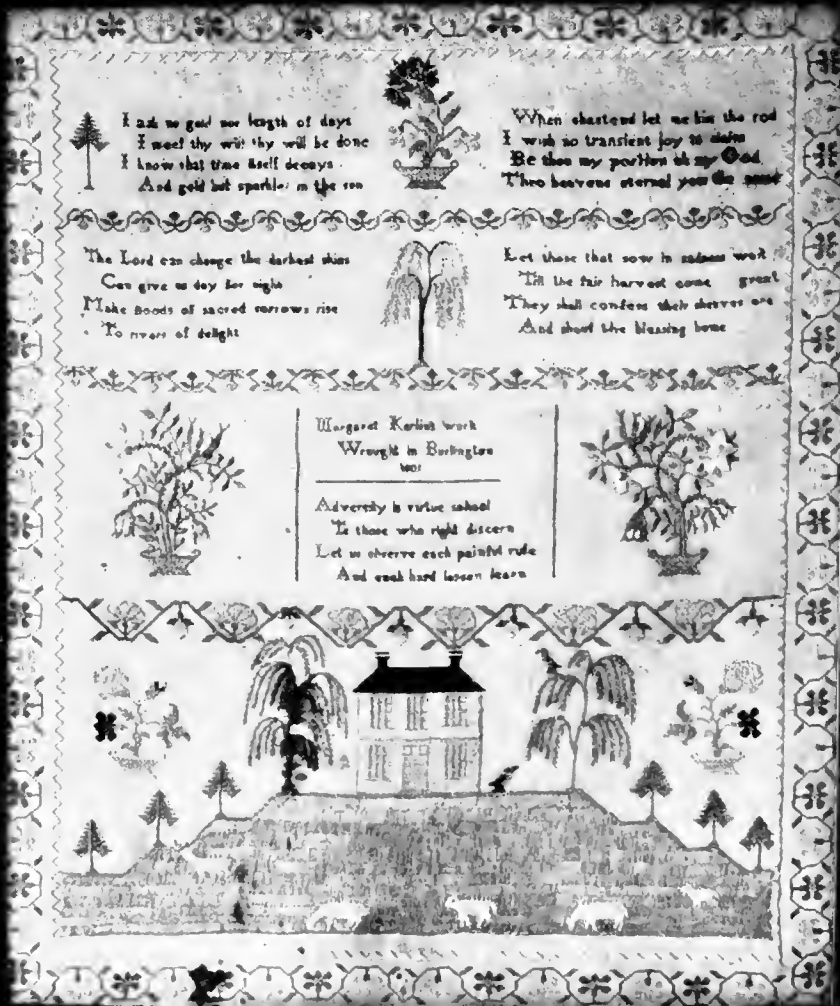 I ask no gold nor length of days
I meet thy will thy will be done
I know that time itself decays
And gold but sparkles in the sun
When chastend let me kiss the rod
I wish no transient joy to claim
Be thou my portion oh my God
Thro heavens eternal year the same
The Lord can change the darkest skies
Can give us day for night
Make floods of sacred sorrows rise
To rivers of delight
Let those that sow in sadness wait
Till the fair harvest come
great
They shall confess their sheaves are
And shout the blessing home
Margaret work
Wrought in Burlington
Adversity is virtue school
To those who right discern
Let us observe each painful rule
And each hard lesson learn